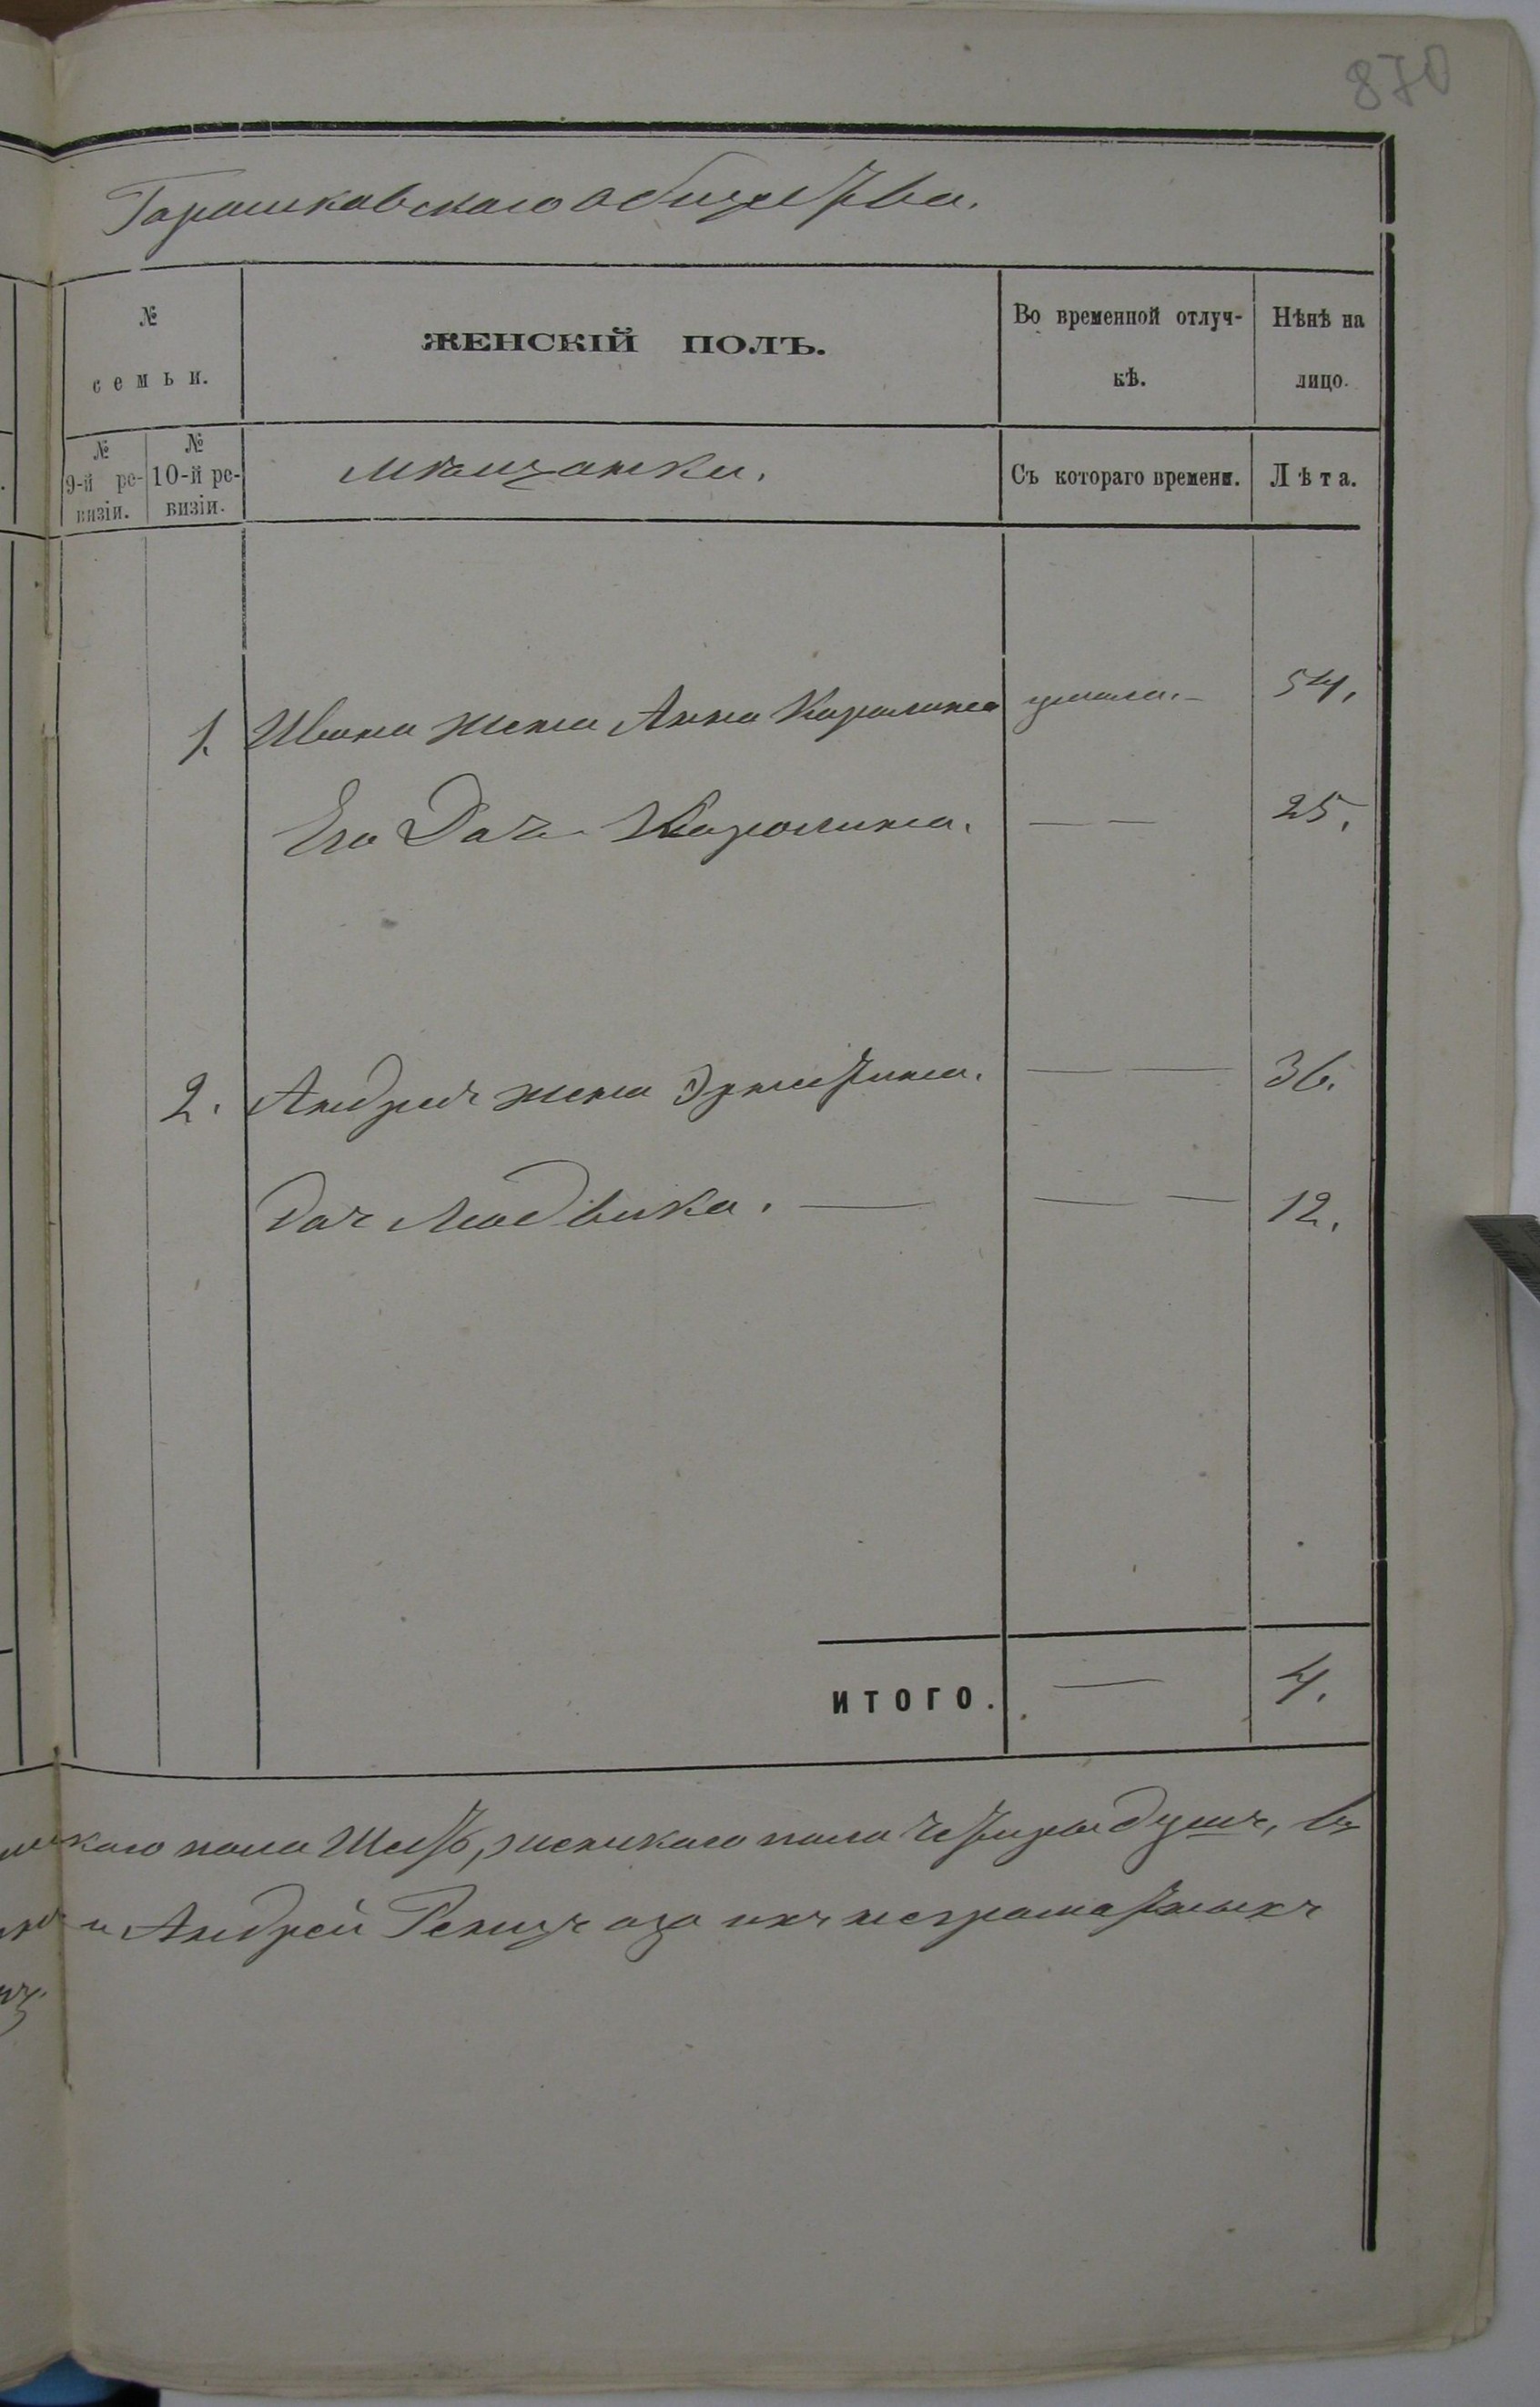 870
Горошковскаго общества.
№
семьи.
ЖЕНСКІЙ ПОЛЪ.
Во временной отлуч-
кѣ.
Нѣнѣ на
лицо.
№
9-й ре-
визіи.
№
10-й ре-
визіи.
Мѣщанки.
Съ котораго времени.
Лѣта.
1. Ивана жена Анна Каролина 54.
Его Доч Каролина. — — 25.
2. Андрея жена Эрнестина. — — 36.
Доч Людвика. — — — 12.
ИТОГО. — 4.
скаго пола Шесть, женскаго пола четыре душъ, въ
и Андрей а за ихъ неграматныхъ